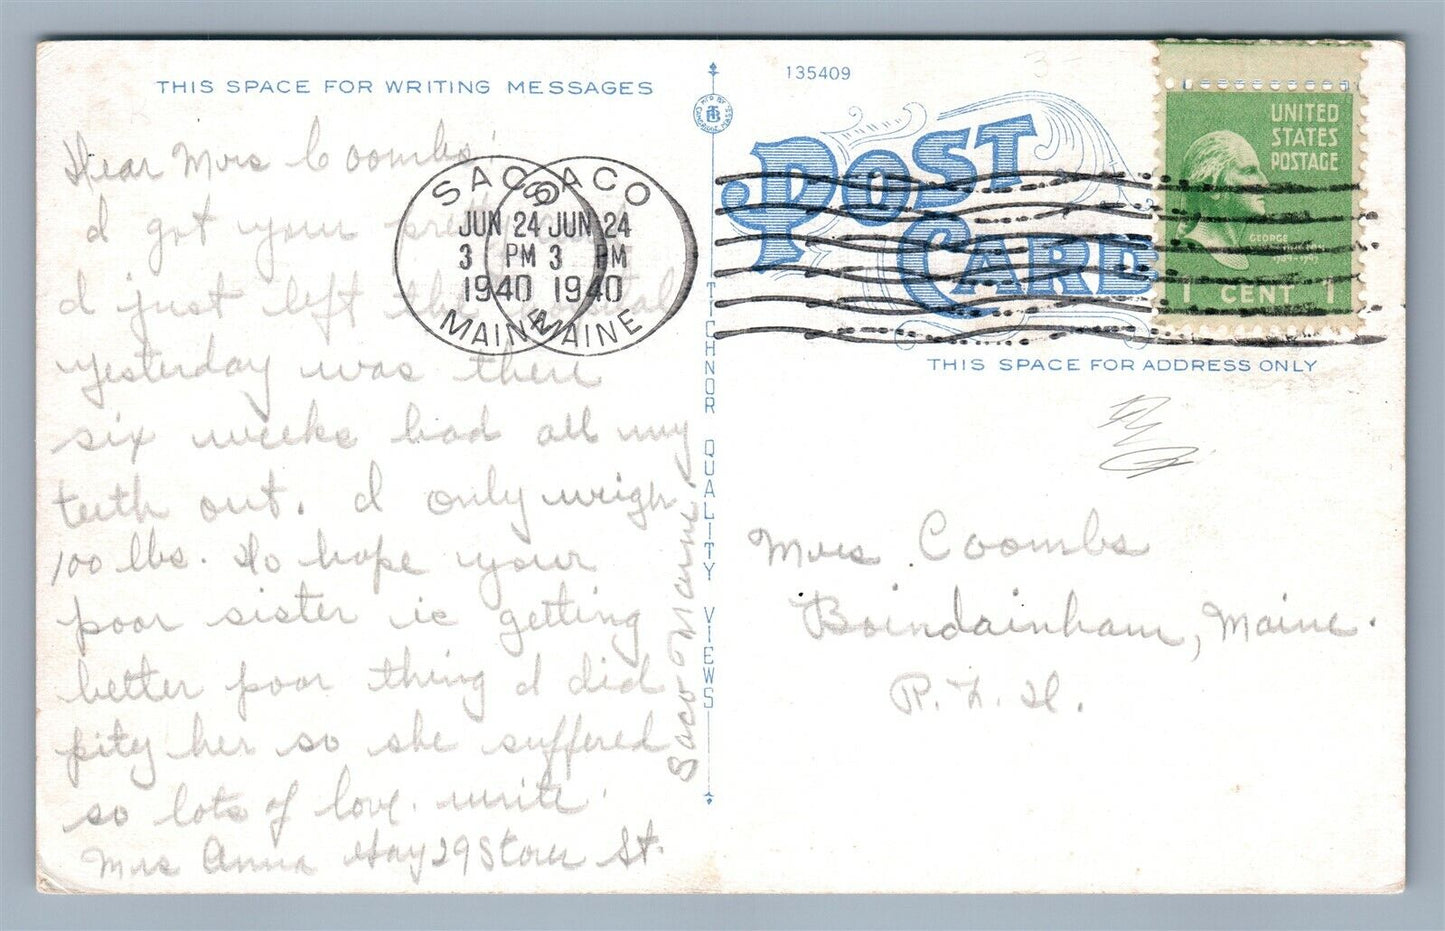 THIS SPACE FOR WRITING MESSAGES
Dear Mrs Coombs'
I got your
I just left the
yesterday was there
six weeks had all my
teeth out. I only weigh
100 lbs. Do hope your
poor sister is getting
better poor thing I did
pity her so she suffered
so lots of love. write.
Mrs Anna Hay 29 Storer St.
Saco Maine
SACO
JUN 24
3 PM
1940
MAINE
SACO
JUN 24
3 PM
1940
MAINE
TICHNOR QUALITY VIEWS
135409
POST CARD
UNITED
STATES
POSTAGE
GEORGE
1 CENT 1
THIS SPACE FOR ADDRESS ONLY
Mrs Coombs
Boindainham, Maine.